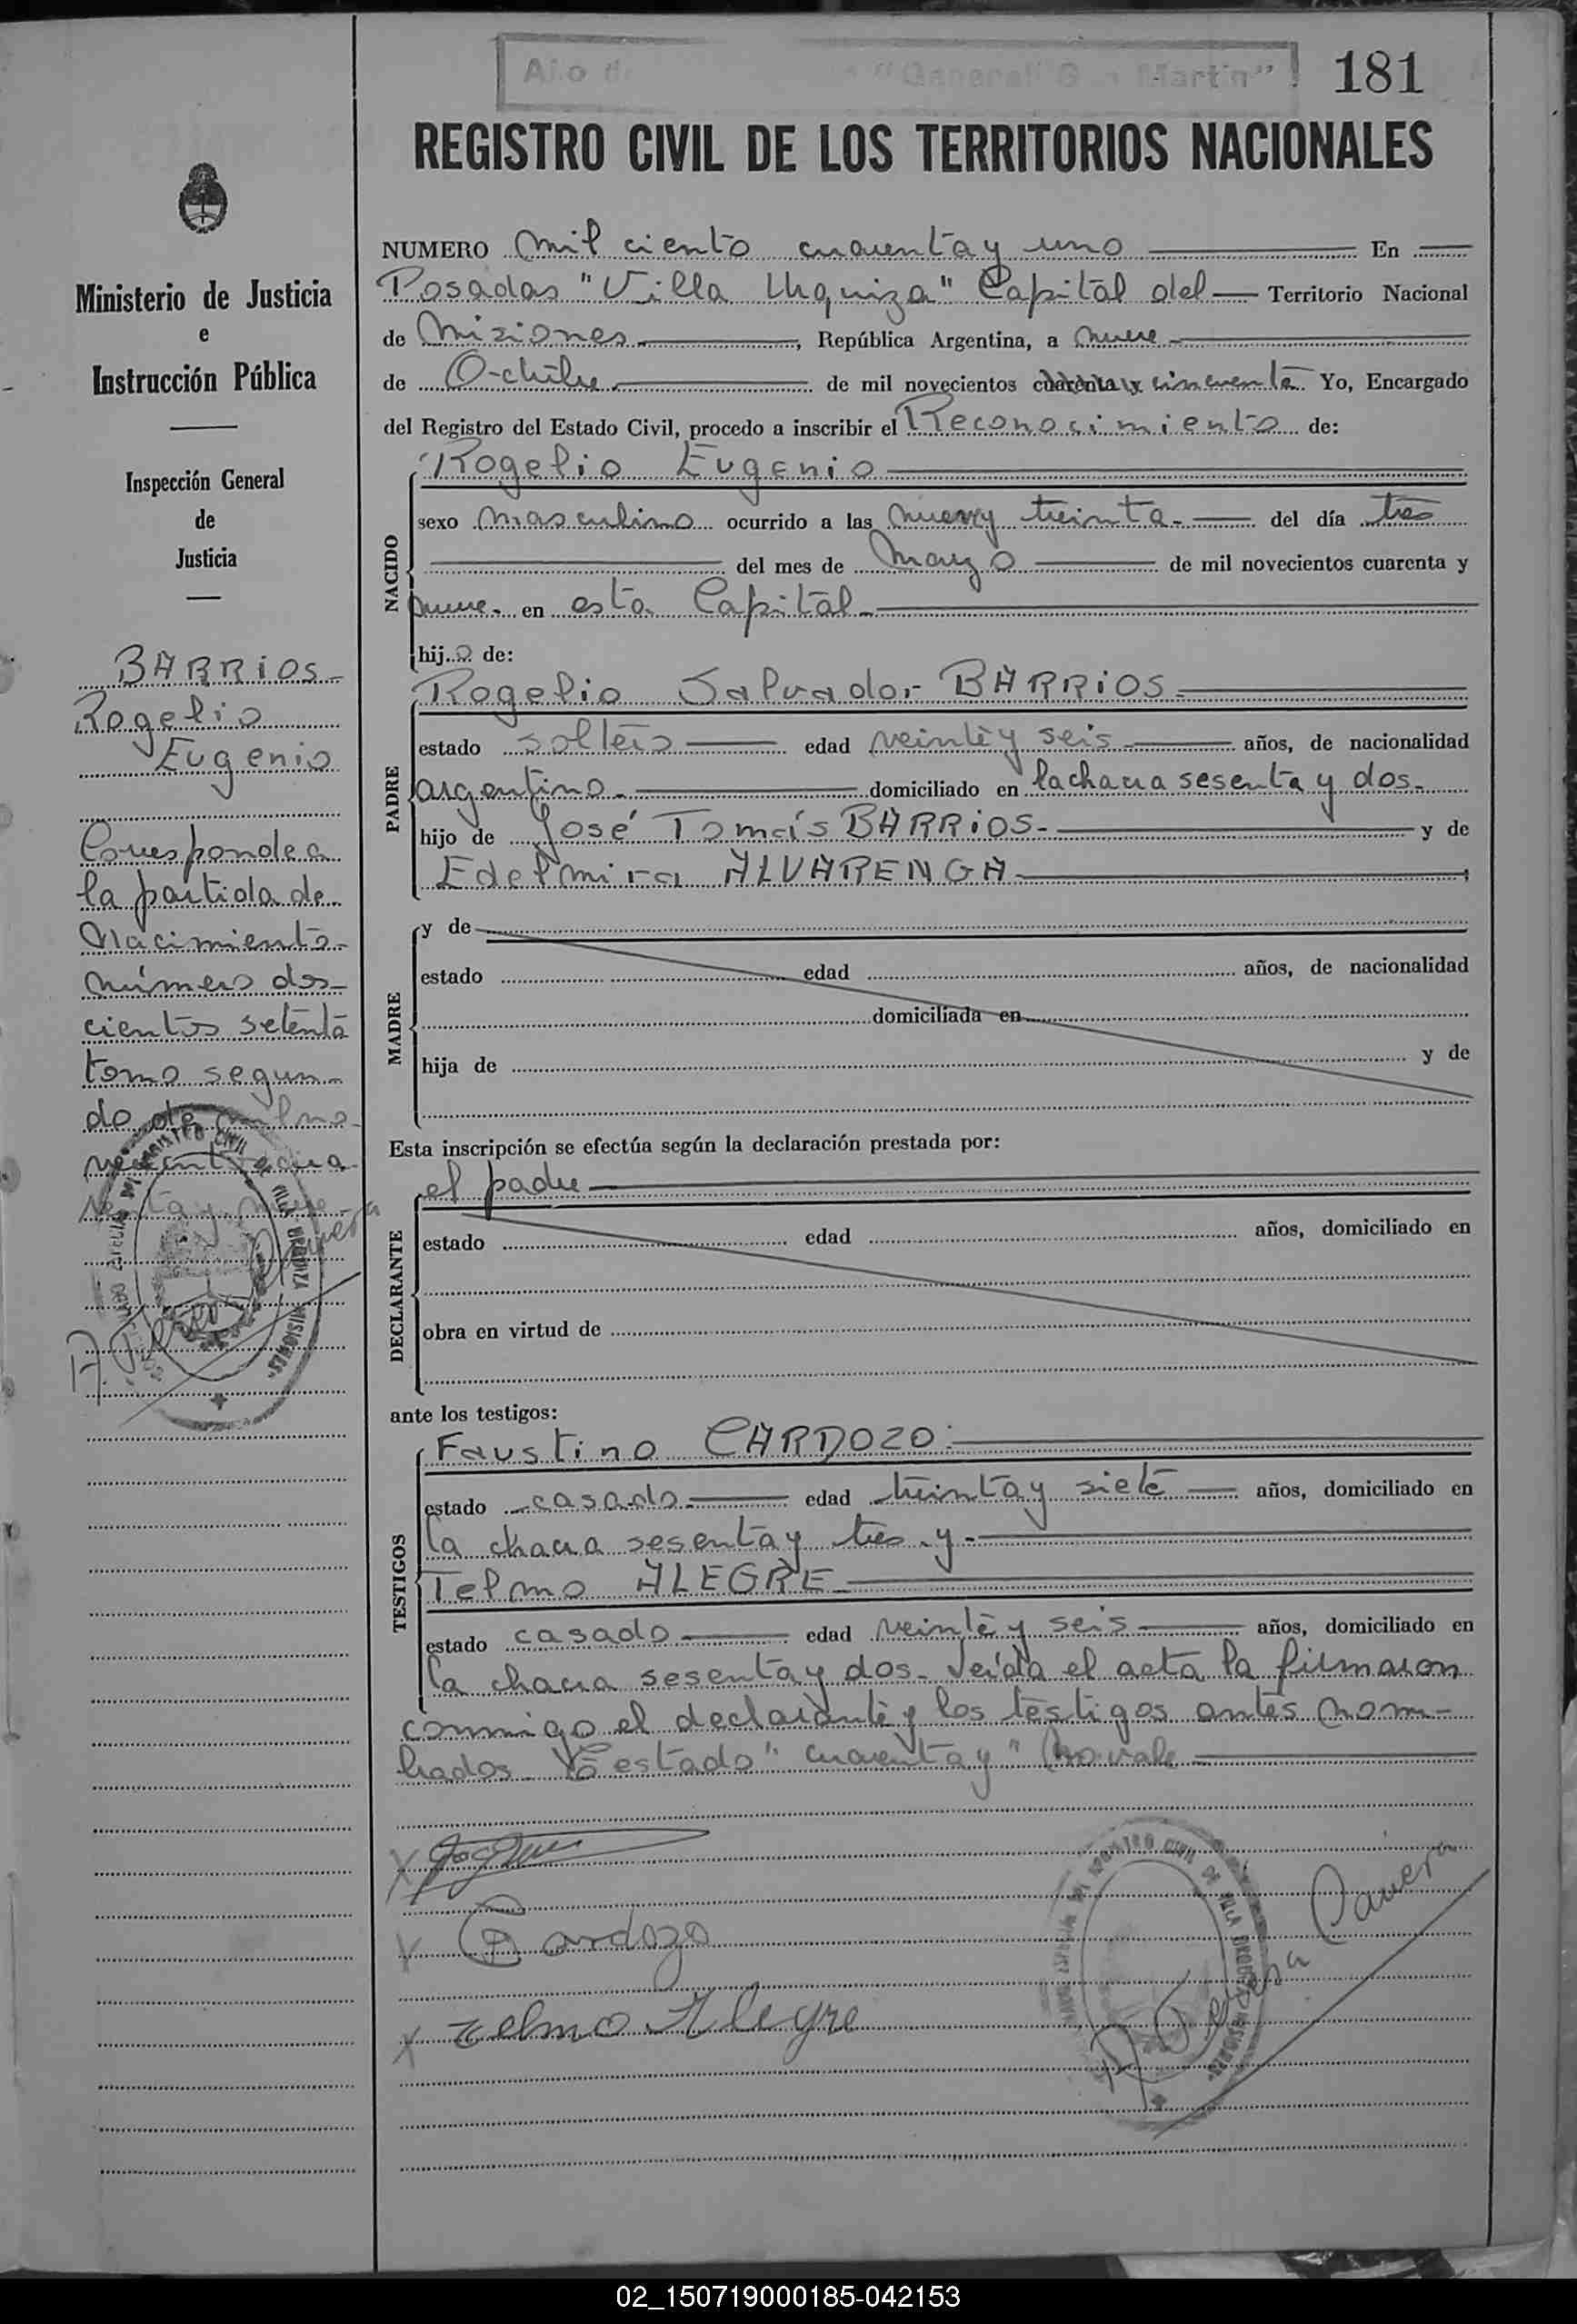 "General San Martin"
181
REGISTRO CIVIL DE LOS TERRITORIOS NACIONALES
Ministerio de Justicia
e
Instrucción Pública
Inspección General
de
Justicia
BARRIOS
Rogelio
Eugenio
Corresponde a
la partida de
Nacimiento
número dos
cientos setenta
tomo segun
do de mil no
vecientos cuarenta
y nueve
A. Teresa Cavera
NUMERO mil ciento cuarenta y uno En
Posadas "Villa Urquiza" Capital del Territorio Nacional
de Misiones, República Argentina, a nueve
de Octubre de mil novecientos cuarenta y cincuenta Yo, Encargado
del Registro del Estado Civil, procedo a inscribir el Reconocimiento de:
NACIDO
Rogelio Eugenio
sexo masculino ocurrido a las nueve y treinta del día tres
del mes de Marzo de mil novecientos cuarenta y
nueve en esta Capital
hijo de:
PADRE
Rogelio Salvador BARRIOS
estado soltero edad veinte y seis años, de nacionalidad
argentino domiciliado en la chacra sesenta y dos
hijo de José Tomás BARRIOS y de
Edelmira ALVARENGA
MADRE
y de
estado edad años, de nacionalidad
domiciliada en
hija de y de
Esta inscripción se efectúa según la declaración prestada por:
DECLARANTE
el padre
estado edad años, domiciliado en
obra en virtud de
ante los testigos:
TESTIGOS
Faustino CARDOZO
estado casado edad treinta y siete años, domiciliado en
la chacra sesenta y tres y
Telmo ALEGRE
estado casado edad veinte y seis años, domiciliado en
la chacra sesenta y dos. Leída el acta la firmaron
conmigo el declarante y los testigos antes nom-
brados. Testado "cuarenta y" no vale
Cardozo
Telmo Alegre
A Teresa Cavera
02_150719000185-042153